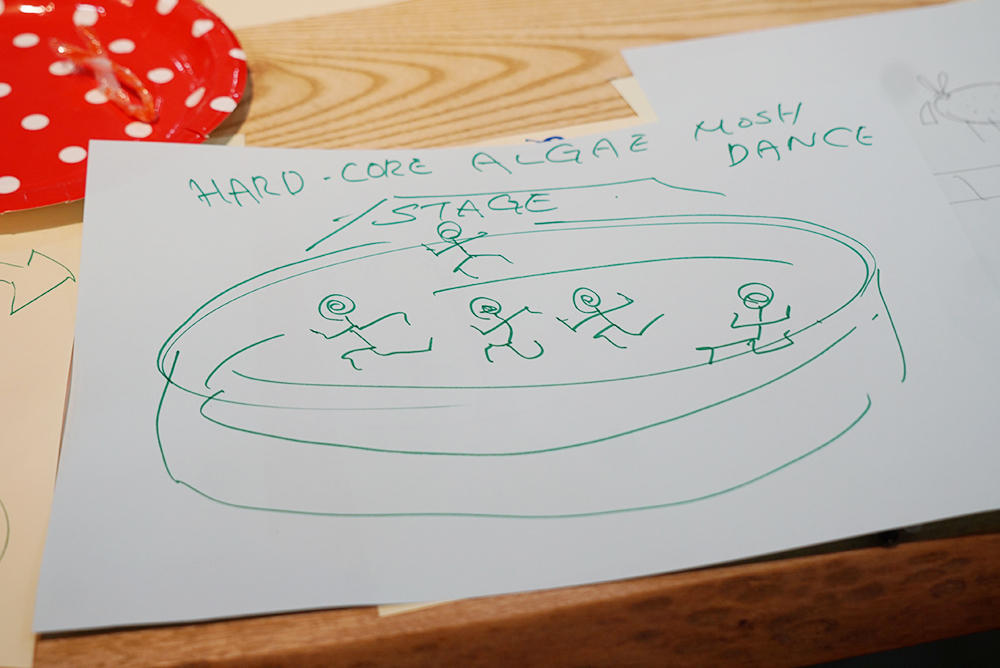 HARD-CORE ALGAE MOSH
DANCE
STAGE